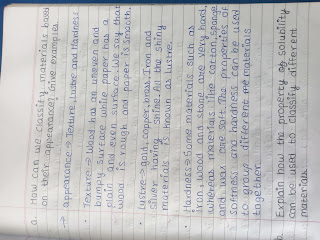 a. How can we classify materials based
on their appearance? Give examples.
→ appearance → Texture, Luster and Hardness
• Texture → Wood has an uneven and
bumpy surface while paper has a
plain and even surface. We say that
wood is rough and paper is smooth.
• Lustre → Gold, copper, brass, Iron and
silver having shine. All the shiny
materials is known as lustre.
• Hardness → Some materials such as
iron, wood and stone are very hard,
whereas materials like cotton, sponge
and wax are soft. The properties of
softness and hardness can be used
to group different materials
together.
b. Explain how the property of solubility
can be used to classify different
materials.